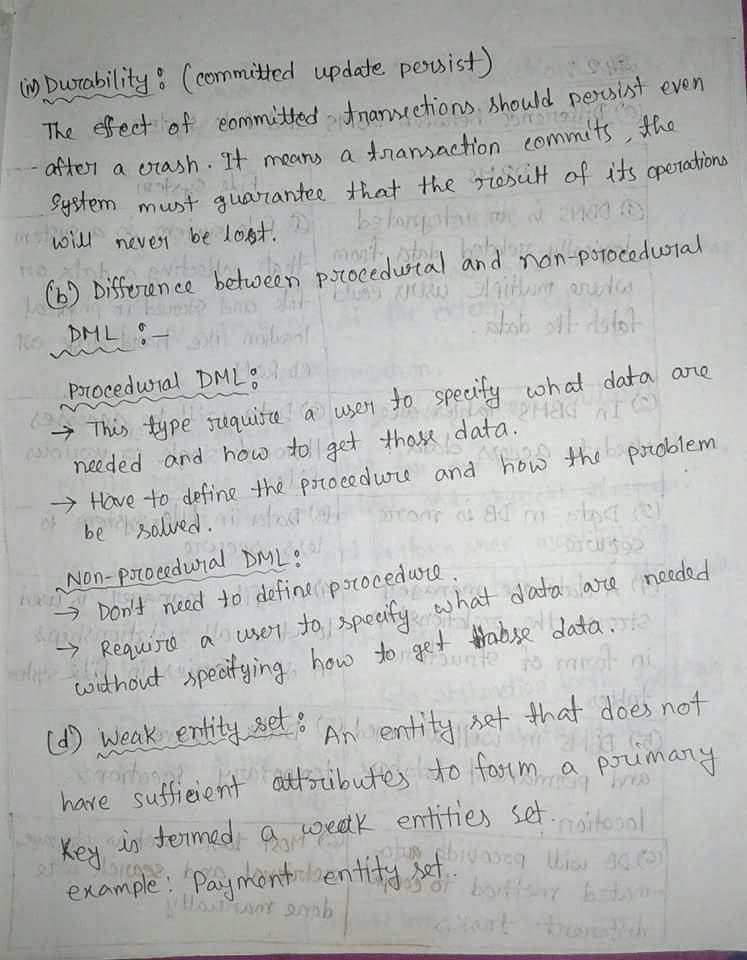 (iv) Durability : (committed update persist)
The effect of committed transections should persist even
after a crash. It means a transaction commits, the
system must guarantee that the result of its operations
will never be lost.
(b) Difference between procedural and non-procedural
DML :-
Procedural DML :
→ This type require a user to specify what data are
needed and how to get those data.
→ Have to define the procedure and how the problem
be solved.
Non-procedural DML :
→ Don't need to define procedure.
→ Require a user to specify what data are needed
without specifying how to get those data.
(d) Weak entity set : An entity set that does not
have sufficient attributes to form a primary
key is termed a weak entities set.
example : Payment entity set.